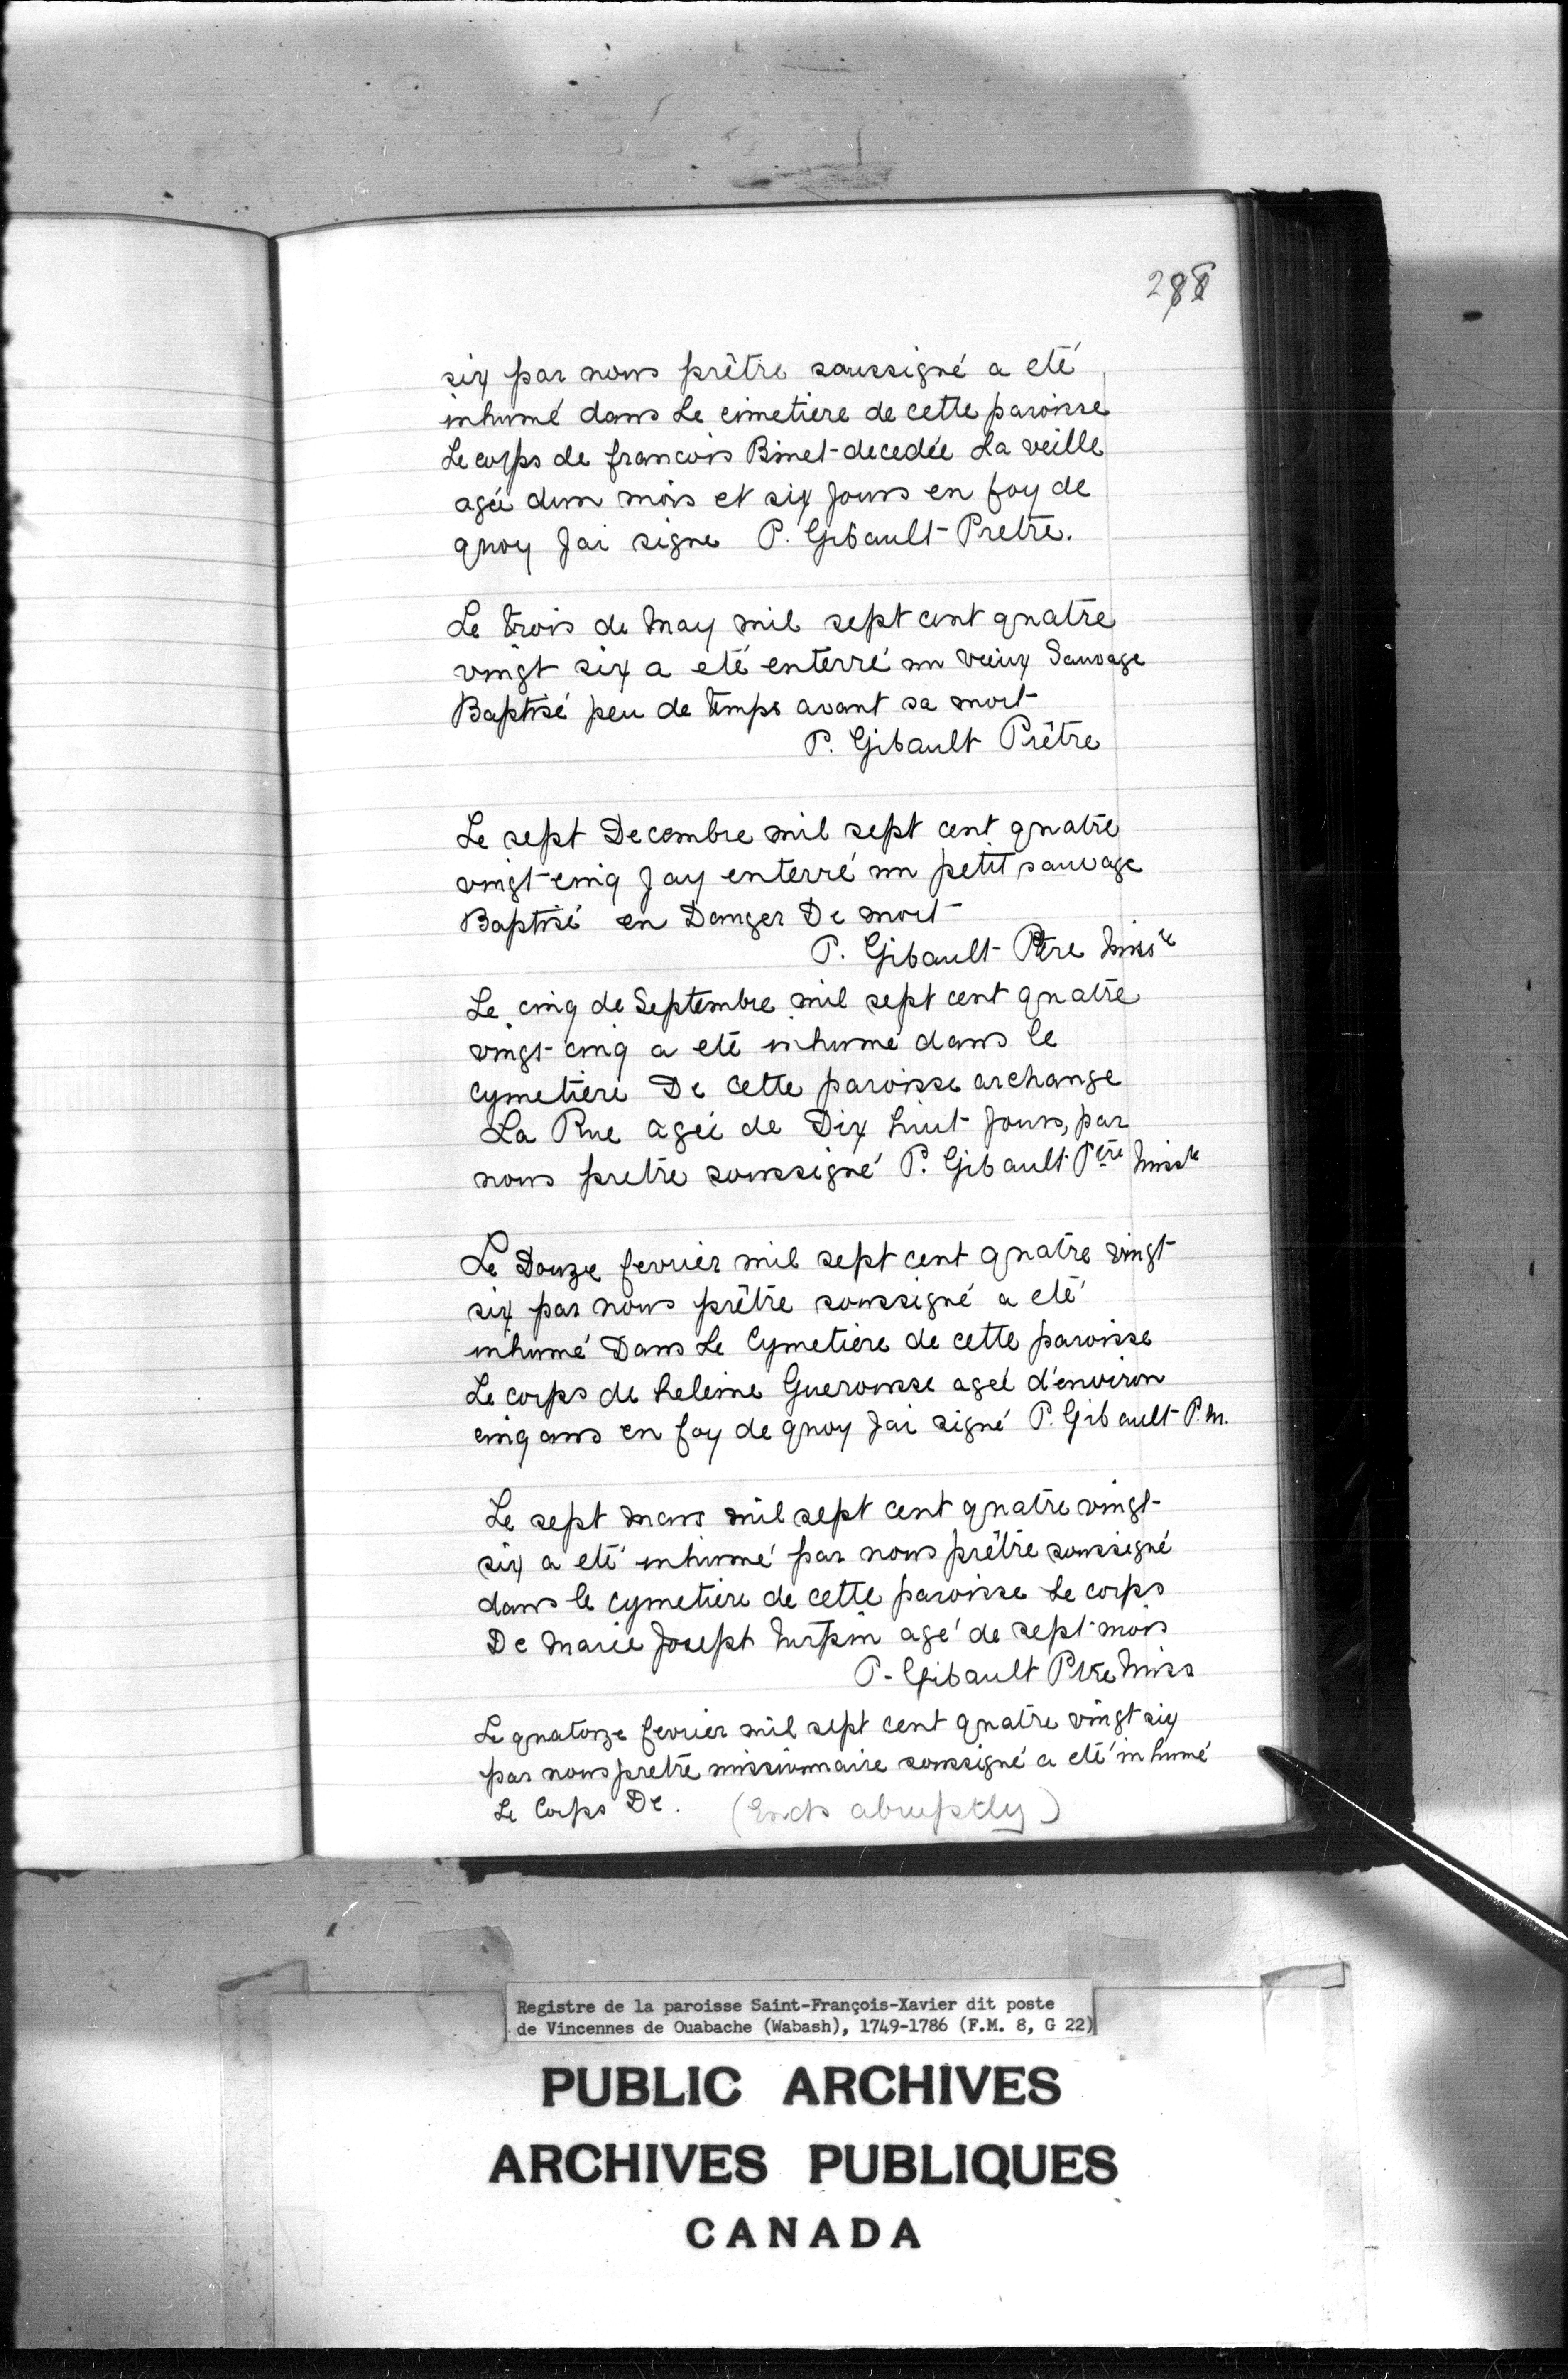 288
six par nous prêtre soussigné a eté
inhumé dans Le cimetiere de cette paroisse
Le corps de francois Binet decedée La veille
agée dun mois et six Jours en foy de
quoy Jai signe P. Gibault Pretre.
Le trois de May mil sept cent quatre
vingt six a eté enterré un vieux Sauvage
Baptisé peu de temps avant sa mort
P. Gibault Prêtre
Le sept Decembre mil sept cent quatre
vingt cinq Jay enterré un petit sauvage
Baptisé en Danger De mort
P. Gibault Ptre Missre
Le cinq de Septembre mil sept cent quatre
vingt cinq a eté inhumé dans le
cymetiere De cette paroisse archange
La Rue agée de Dix huit Jours, par
nous pretre soussigné P. Gibault Ptre Missre
Le Douze fevrier mil sept cent quatre vingt
six par nous prêtre soussigné a eté
inhumé Dans Le Cymetiere de cette paroisse
Le corps de heleine Guerousse ageé d'environ
cinq ans en foy de quoy Jai signé P. Gibault P.M.
Le sept Mars mil sept cent quatre vingt
six a eté inhumé par nous prêtre soussigné
dans le cymetiere de cette paroisse Le corps
De Marie Joseph Turpin agé de sept mois
P. Gibault Ptre Miss
Le quatorze fevrier mil sept cent quatre vingt six
par nous pretre missionnaire soussigné a eté inhumé
Le Corps De. (Ends abruptly)
Registre de la paroisse Saint-François-Xavier dit poste
de Vincennes de Ouabache (Wabash), 1749-1786 (F.M. 8, G 22)
PUBLIC ARCHIVES
ARCHIVES PUBLIQUES
CANADA